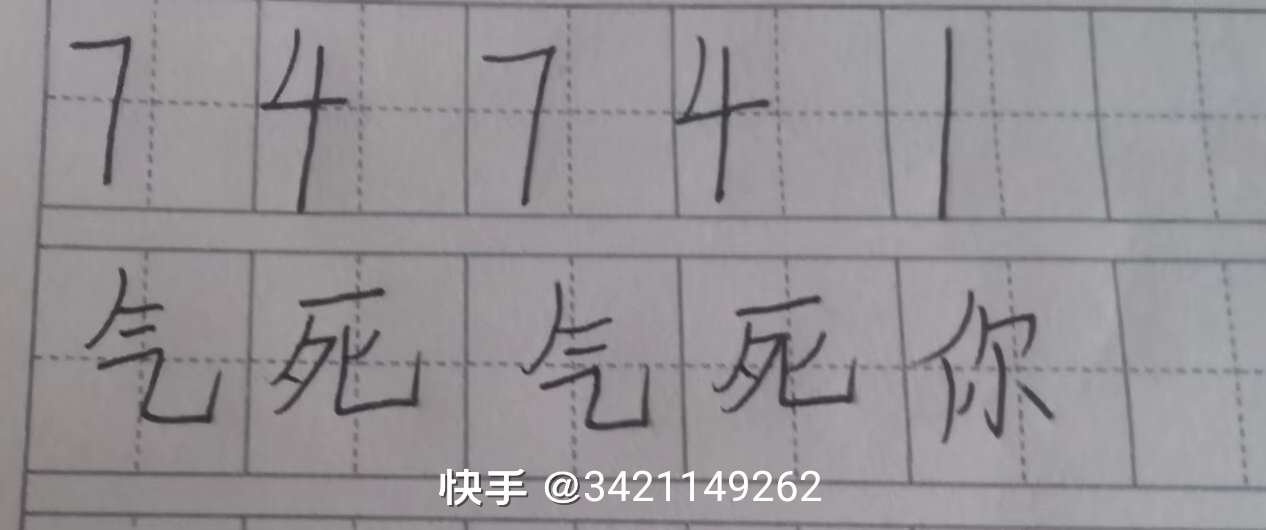 74741
气死气死你
快手 @3421149262